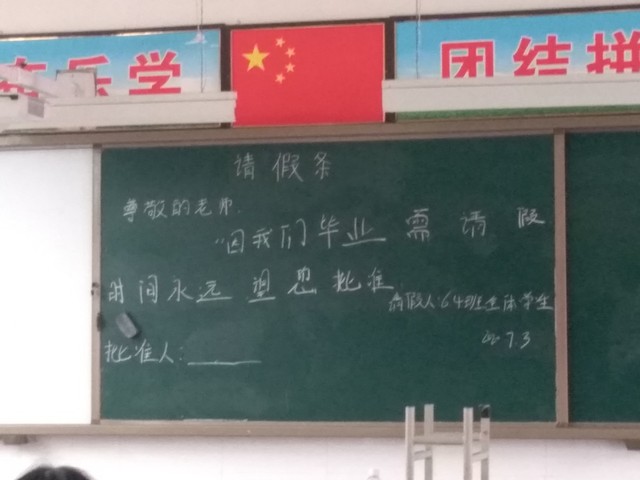 乐学
团结拼
请假条
尊敬的老师.
"因我们毕业需请假
时间永远望您批准
请假人:64班全体学生
7.3
批准人: